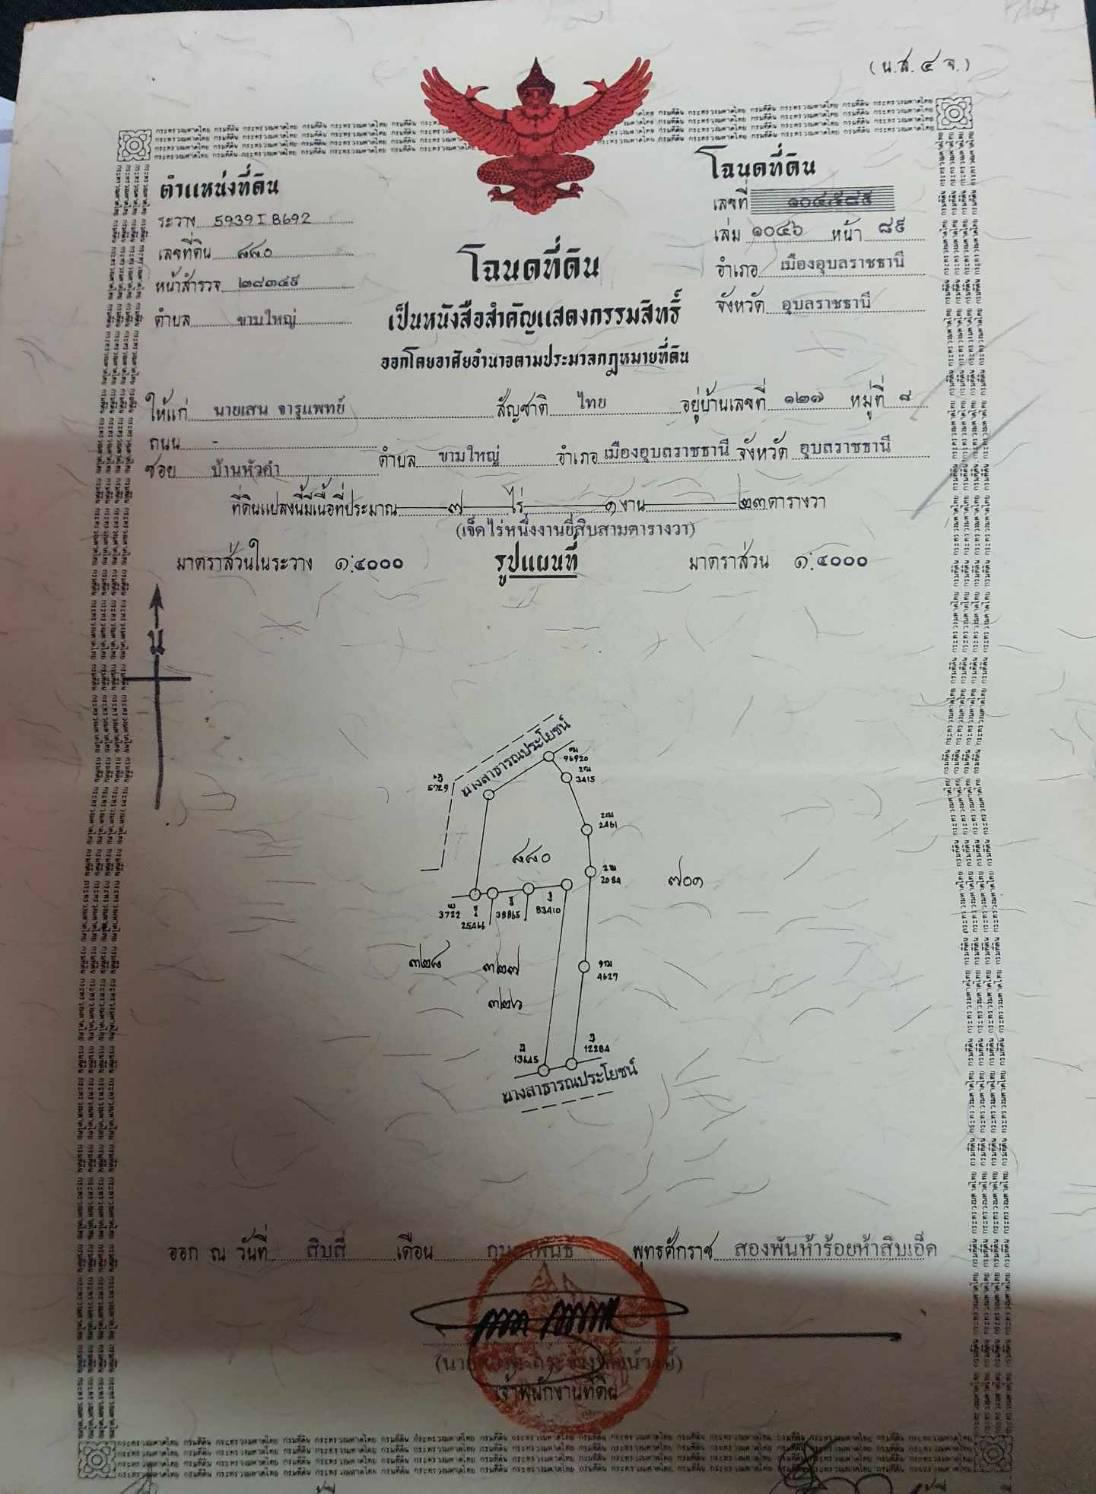 (น.ส.๔ จ.)
ตำแหน่งที่ดิน
ระวาง 5939 I 8692
เลขที่ดิน ๘๘๐
หน้าสำรวจ ๒๘๓๔๕
ตำบล ขามใหญ่
โฉนดที่ดิน
เลขที่ ๑๐๔๕๘๕
เล่ม ๑๐๔๖ หน้า ๘๕
อำเภอ เมืองอุบลราชธานี
จังหวัด อุบลราชธานี
โฉนดที่ดิน
เป็นหนังสือสำคัญแสดงกรรมสิทธิ์
ออกโดยอาศัยอำนาจตามประมวลกฎหมายที่ดิน
ให้แก่ นายเสน จารุแพทย์ สัญชาติ ไทย อยู่บ้านเลขที่ ๑๒๗ หมู่ที่ ๘
ถนน -
ซอย บ้านหัวคำ ตำบล ขามใหญ่ อำเภอ เมืองอุบลราชธานี จังหวัด อุบลราชธานี
ที่ดินแปลงนี้มีเนื้อที่ประมาณ ๗ ไร่ ๑ งาน ๒๓ ตารางวา
(เจ็ดไร่หนึ่งงานยี่สิบสามตารางวา)
มาตราส่วนในระวาง ๑:๔๐๐๐ รูปแผนที่ มาตราส่วน ๑:๔๐๐๐
น
ทางสาธารณประโยชน์
5729
96920
3415
2461
๘๘๐
2084
๗๐๑
3722
25466
38865
83410
๓๒๘
๓๒๗
4627
๓๒๖
13645
12284
ทางสาธารณประโยชน์
ออก ณ วันที่ สิบสี่ เดือน กุมภาพันธ์ พุทธศักราช สองพันห้าร้อยห้าสิบเอ็ด
เจ้าพนักงานที่ดิน
กระทรวงมหาดไทย กรมที่ดิน